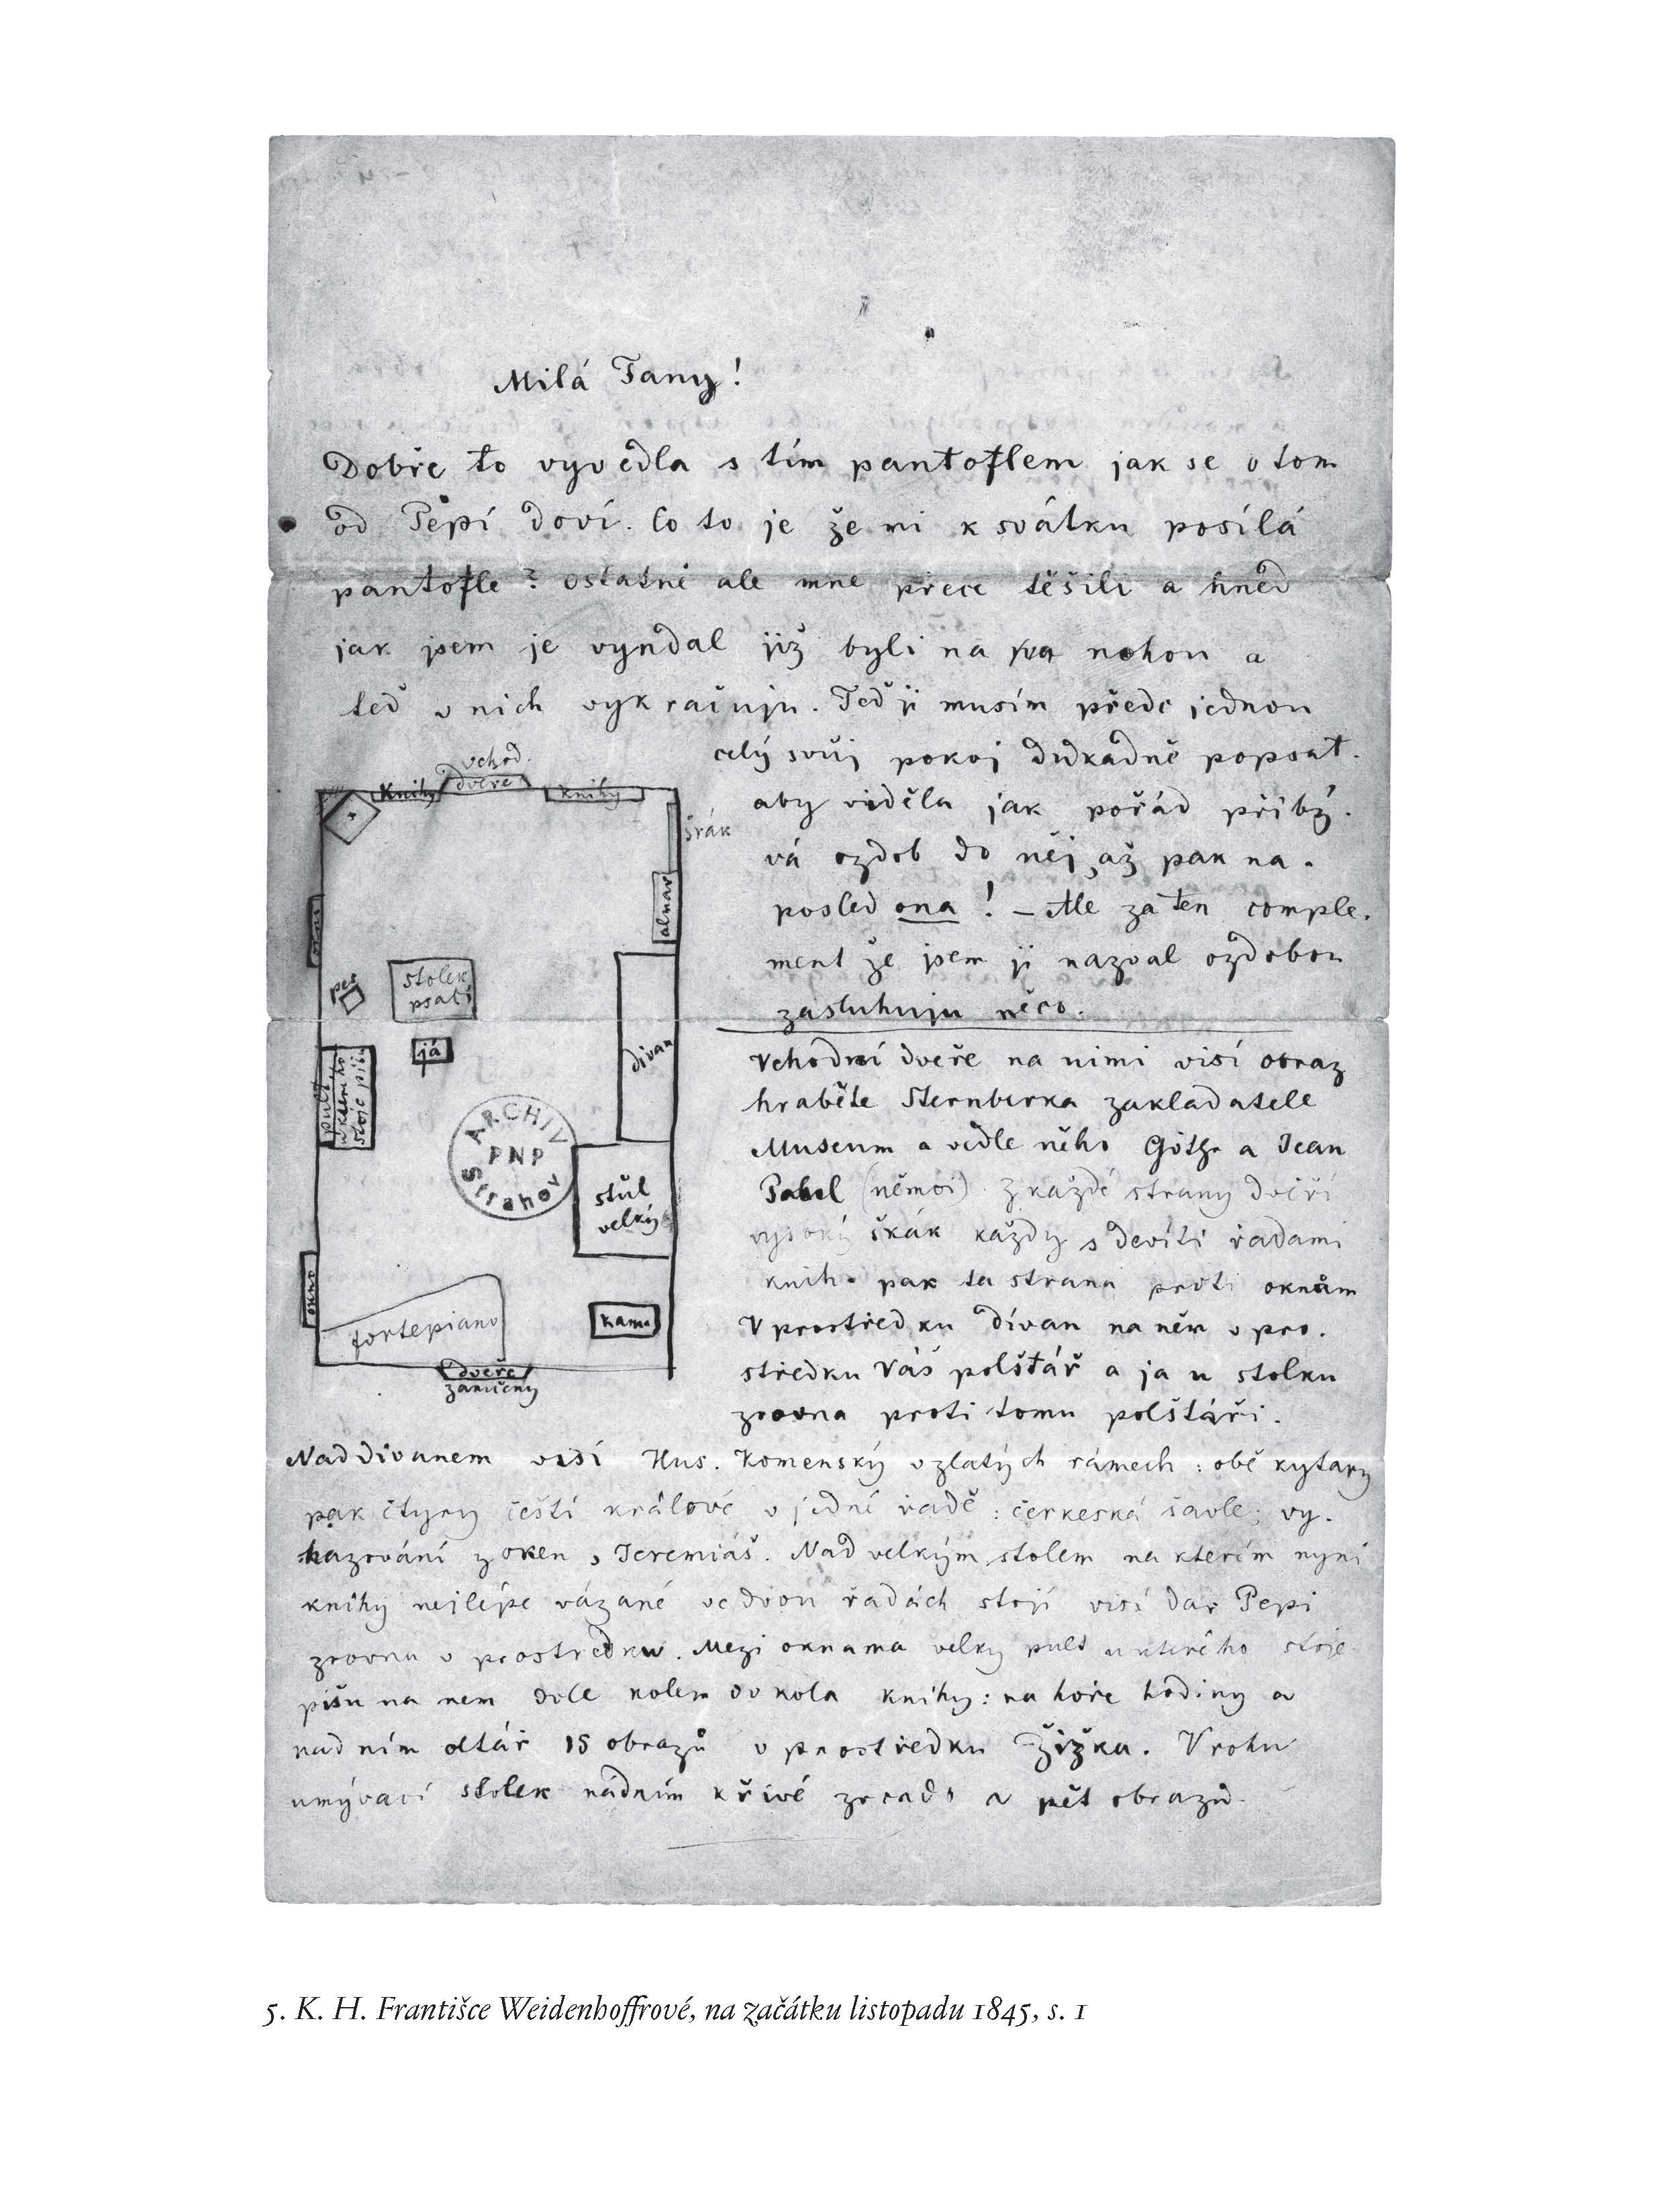 Milá Fany!
Dobře to vyvedla s tím pantoflem jak se o tom
od Pepí doví. Co to je že mi k svátku posílá
pantofle? Ostatně ale mne přece těšili a hned
jak jsem je vyndal již byli na nohou a
teď v nich vykračuju. Teď ji musím přede jednou
celý svůj pokoj důkadně popsat.
aby viděla jak pořád přibý-
vá ozdob do něj, až pak na-
posled ona! – Ale za ten comple-
ment že jsem ji nazval ozdobou
zasluhuju něco.
vchod
dveře
Knihy
knihy
šrák
almar
okno
pes
stolek
psací
já
divan
pult
u kterého
stoje píši
ARCHIV
PNP
Strahov
stůl
velký
okno
fortepiano
kamn
dveře
zamičený
Vchodní dveře na nimi visí obraz
hraběte Sternberka zakladatele
Museum a vedle něho Göthe a Jean
Pabel (němci). Z každé strany dveří
vysoký škák každy s devíti řadami
knih. pak ta strana proti oknům
V prostředku divan na něm v pro-
středku Váš polštář a ja u stolku
zrovna proti tomu polštáři.
Nad divanem visí Hus. Komenský v zlatých rámech: obě kytary
pak čtyry čeští králové v jedné radě: čerkeská šavle; vy-
hazování z oken, Jeremiáš. Nad velkým stolem na kterém nyní
knihy nejlépe vázané ve dvou řadách stojí visí dar Pepi
zrovna v prostředku. Mezi oknama velky pult u kterého stoje
pišu na nem dole kolem do kola knihy: na hoře hodiny a
nad ním oltář 15 obrazů v prostředku Žižka. V rohu
umývací stolek nádním křivé zrcado a pět obrazů.
5. K. H. Františce Weidenhoffrové, na začátku listopadu 1845, s. 1